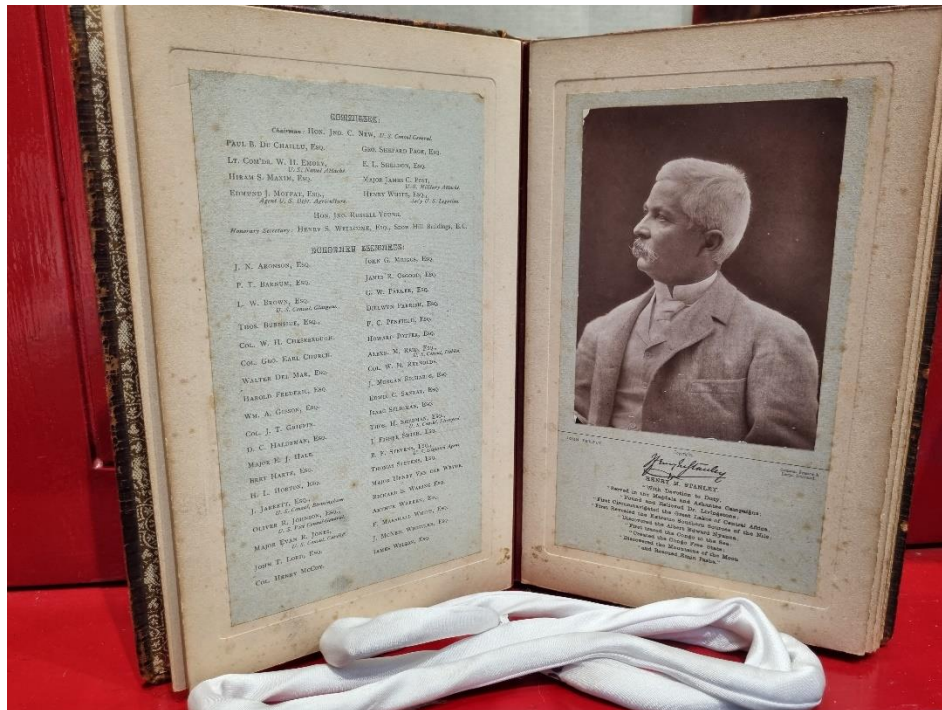 COMMITTEE:
Chairman: HON. JNO. C. NEW, U. S. Consul General.
PAUL B. DU CHAILLU, ESQ.
LT. COM'DR. W. H. EMORY,
U. S. Naval Attaché
HIRAM S. MAXIM, ESQ.
EDMUND J. MOFFAT, ESQ.,
Agent U. S. Dept. Agriculture.
GEO. SHEPARD PAGE, ESQ.
E. L. SHELDON, ESQ.
MAJOR JAMES C. POST,
U.S. Military Attaché.
HENRY WHITE, ESQ.,
Sec'y U. S. Legation.
HON. JNO. RUSSELL YOUNG.
Honorary Secretary: HENRY S. WELLCOME, ESQ., Snow Hill Buildings, E.C.
J. N. ARONSON, ESQ.
P. T. BARNUM, ESQ.
L. W. BROWN, ESQ.
U. S. Consul, Glasgow.
THOS. BURNSIDE, ESQ.,
COL. W. H. CHESEBROUGH.
COL. GEO. EARL CHURCH.
WALTER DEL MAR, ESQ.
HAROLD FREDERIC, ESQ.
WM. A. GIBSON, ESQ.
COL. J. T. GRIFFIN.
D. C. HALDEMAN, ESQ.
MAJOR E. J. HALE.
BRET HARTE, ESQ.
H. L. HORTON, ESQ.
J. JARRETT, ESQ.,
U. S. Consul, Birmingham
OLIVER R. JOHNSON, ESQ.,
U. S. Vice Consul General
MAJOR EVAN R. JONES,
U. S. Consul, Cardiff
JOHN T. LORD, ESQ.
COL. HENRY MCCOY.
JOHN G. MEIGGS, ESQ.
JAMES R. OSGOOD, ESQ.
G. W. PARKER, ESQ.
F. C. PENFIELD, ESQ.
HOWARD POTTER, ESQ.
ALEXR. J. REID, ESQ.,
U. S. Consul, Dublin.
COL. W. H. REYNOLDS.
J. MORGAN RICHARDS, ESQ.
LEWIS C. SANTAS, ESQ.
ISAAC SELIGMAN, ESQ.
THOS. H. SHERMAN, ESQ.,
U. S. Consul, Liverpool
B. F. STEVENS, ESQ.,
U. S. Despatch Agent
THOMAS STEVENS, ESQ.
MAJOR HENRY VAN DER WEYDE.
RICHARD D. WARING ESQ.
ARTHUR WARREN, ESQ.
F. MARSHALL WHITE, ESQ.
J. MCNEIL WHISTLER, ESQ.
JAMES WILSON, ESQ.
Henry M. Stanley
HENRY M. STANLEY
"With Devotion to Duty,
"Served in the Magdala and Ashantee Campaigns:
"Found and Relieved Dr. Livingstone.
"First Circumnavigated the Great Lakes of Central Africa.
"First Revealed the Extreme Southern Sources of the Nile.
"Discovered the Albert Edward Nyanza.
"First traced the Congo to the Sea.
"Created the Congo Free State.
"Discovered the Mountains of the Moon
"and Rescued Emin Pasha."